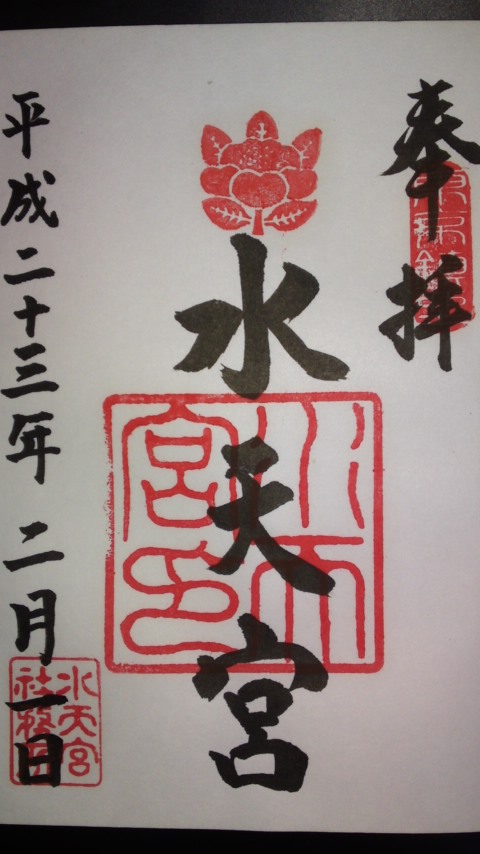 奉拝
水天宮
水天宮印
平成二十三年 二月一日
水天宮
社務所